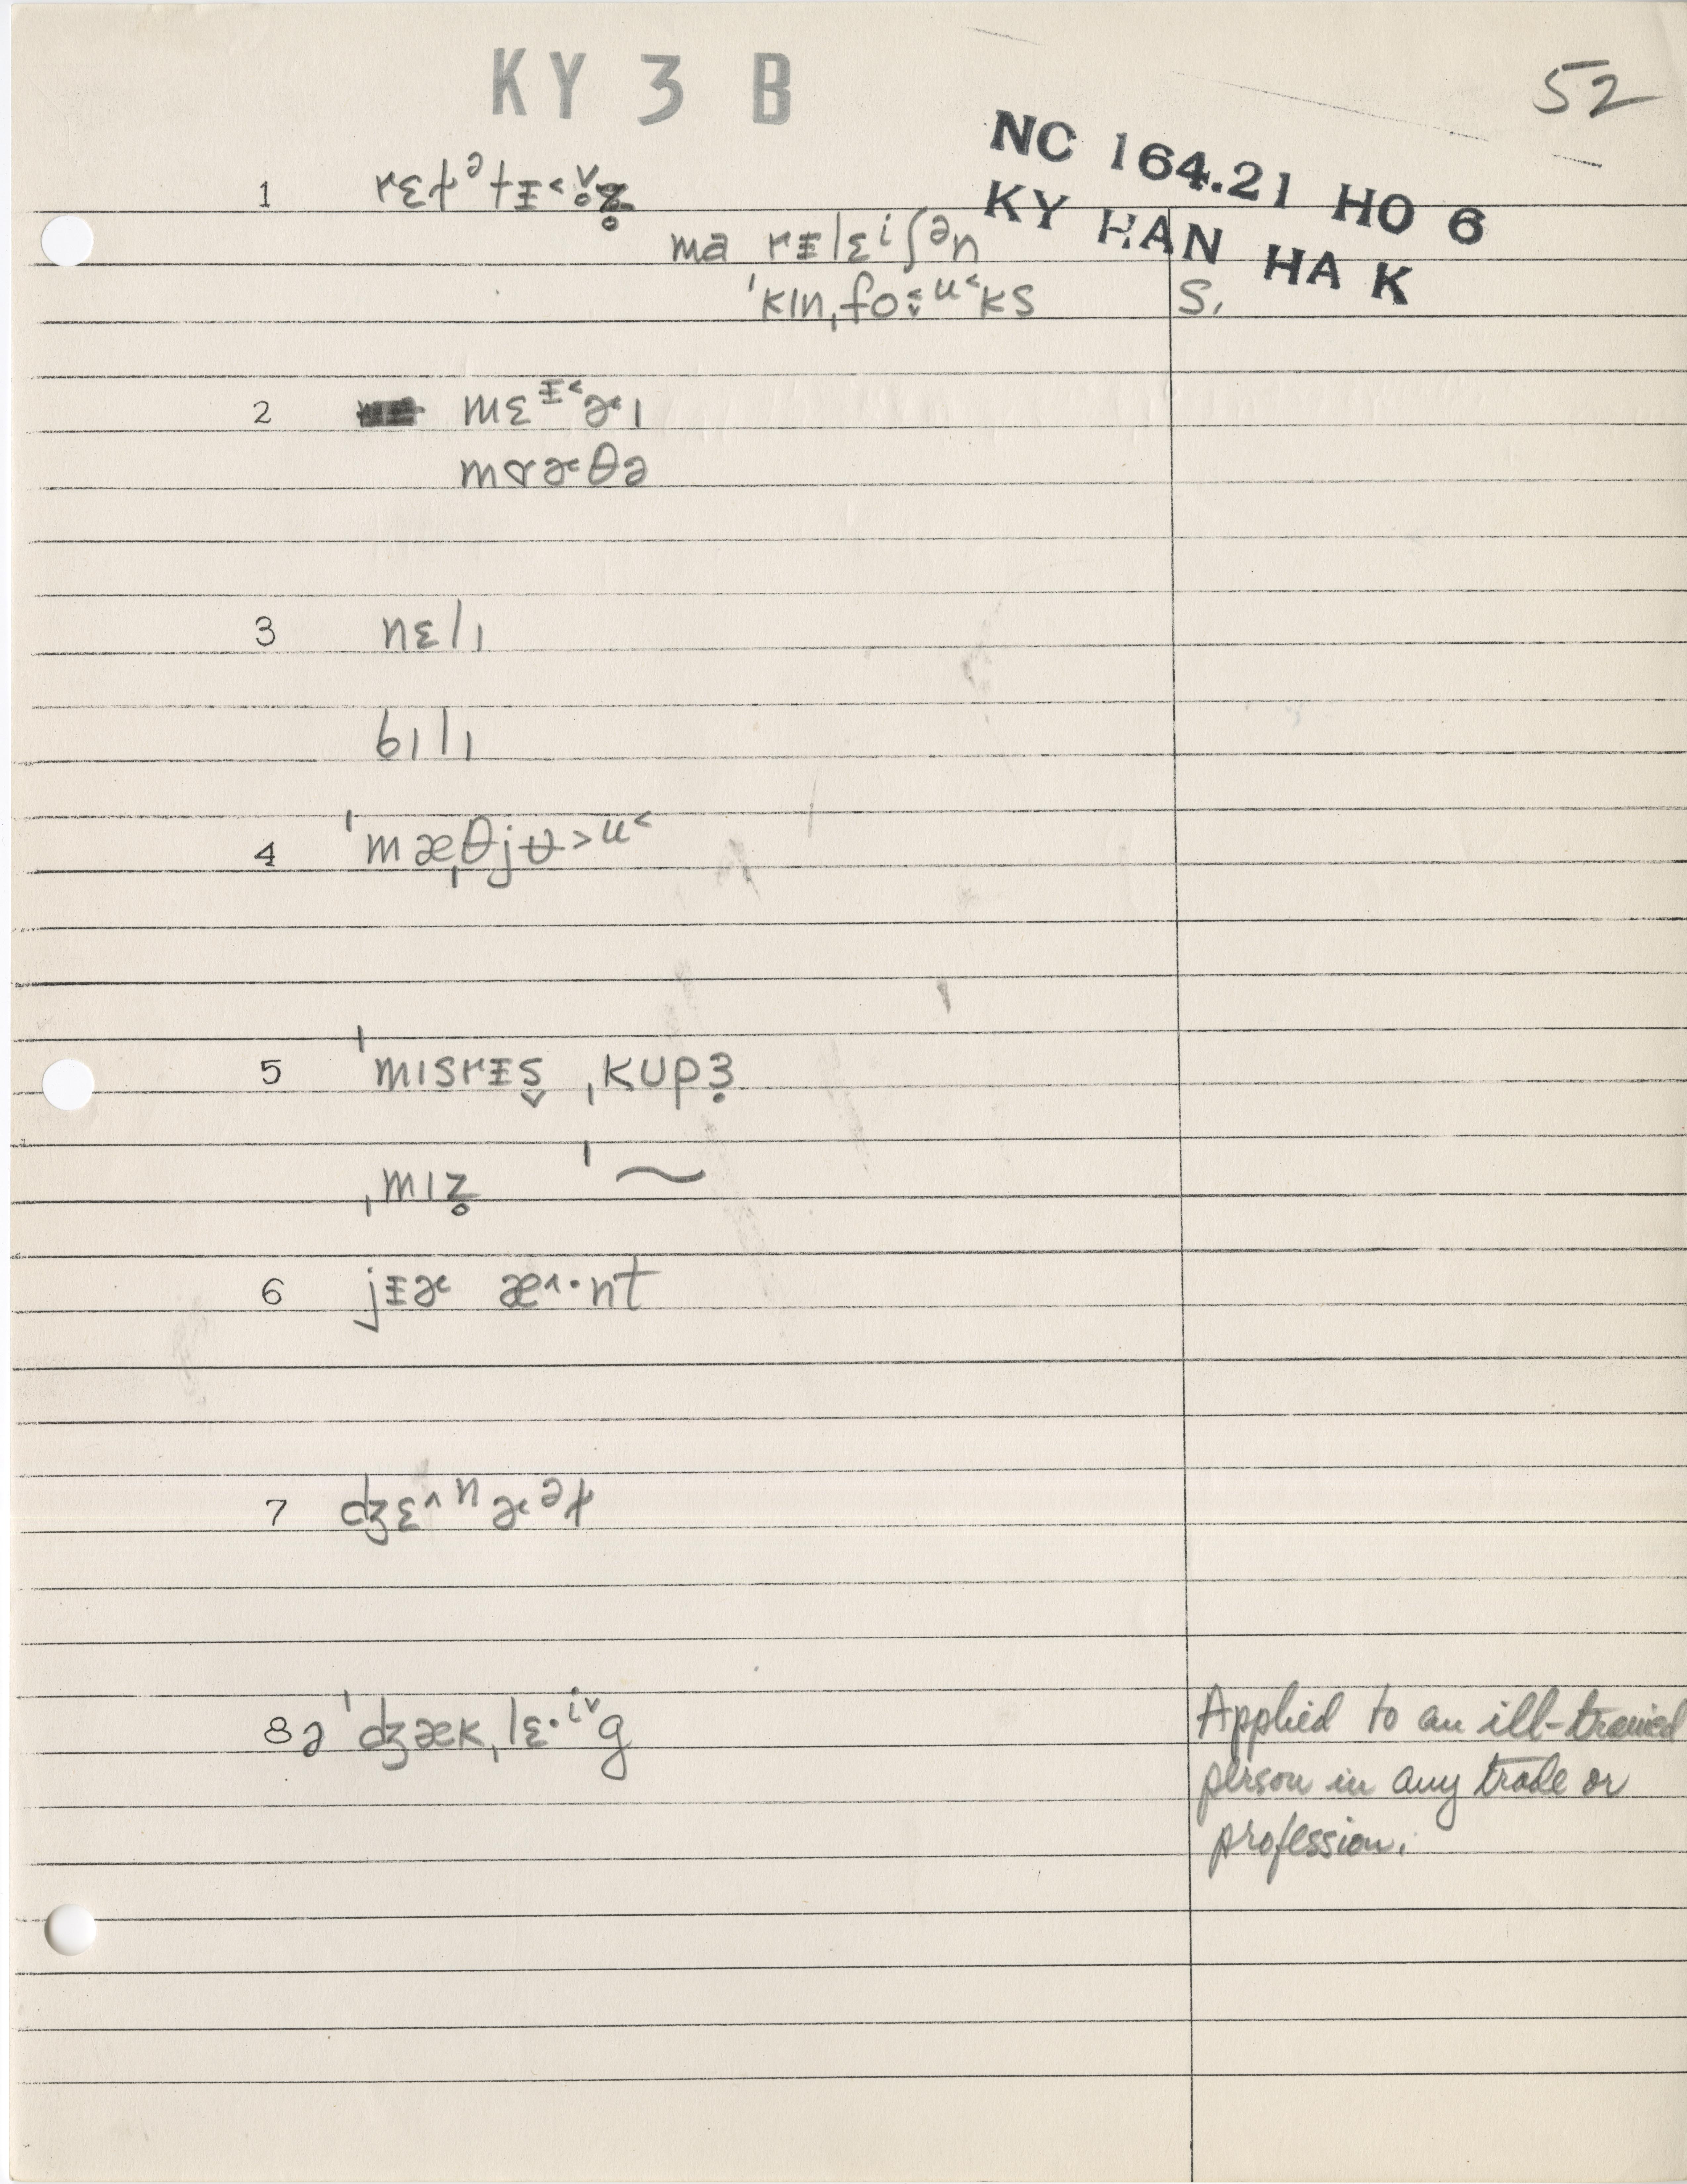 KY 3 B
52
NC 164.21 HO 6
KY HAN HA K
1
mə rᵻlɛⁱʃᵊn
ˈkɪnˌfo˂ᵘ˂ks S.
2 mɛᵻ˂ɚɪ
mɑɚθə
3 nɛlɪ
bɪlɪ
4 ˈmæˌθjʉ˃ᵘ˂
5 ˈmɪsrᵻs̬ ˌkupɜ̣
ˌmɪz̥ ˈ~
6 jᵻɚ æ˄·nt
7 dʒɛ˄ⁿɚᵊɫ
8 ə ˈdʒækˌlɛ·ⁱ˅g
Applied to an ill-trained
person in any trade or
profession.